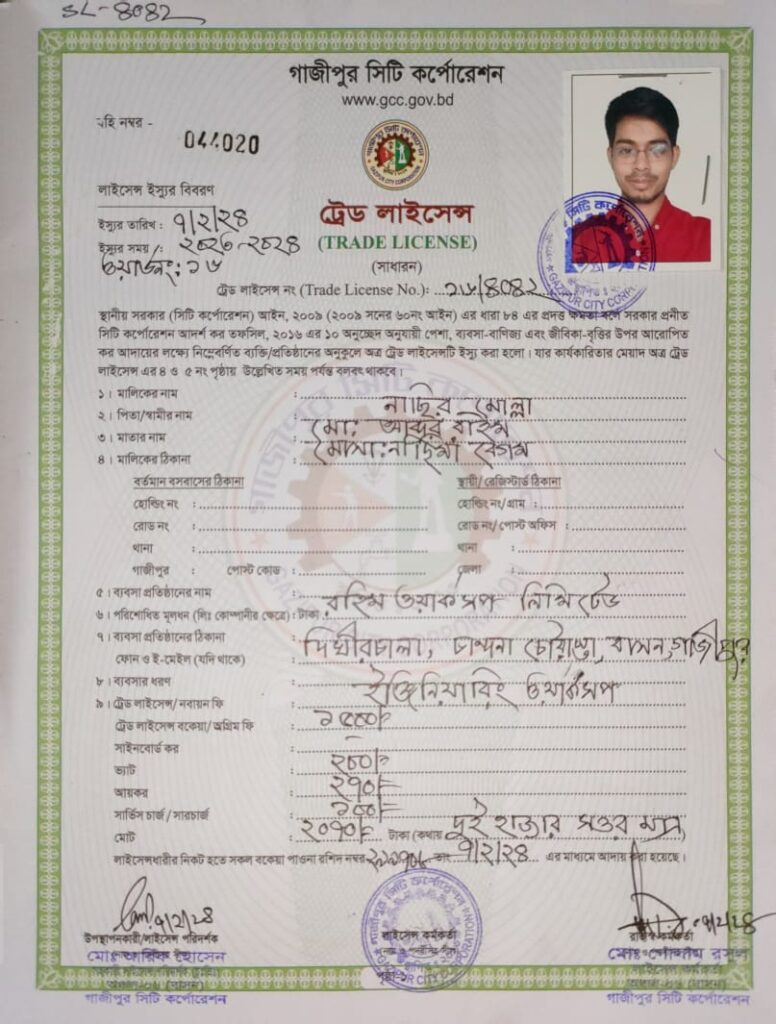 SL-8082
গাজীপুর সিটি কর্পোরেশন
www.gcc.gov.bd
বহি নম্বর -
044020
লাইসেন্স ইস্যুর বিবরণ
ইস্যুর তারিখ : ৭/২/২৪
ইস্যুর সময় : ২০২৩-২০২৪
ওয়ার্ড নং: ১৬
ট্রেড লাইসেন্স
(TRADE LICENSE)
(সাধারন)
ট্রেড লাইসেন্স নং (Trade License No.):
স্থানীয় সরকার (সিটি কর্পোরেশন) আইন, ২০০৯ (২০০৯ সনের ৬০নং আইন) এর ধারা ৮৪ এর প্রদত্ত ক্ষমতা বলে সরকার প্রনীত
সিটি কর্পোরেশন আদর্শ কর তফসিল, ২০১৬ এর ১০ অনুচ্ছেদ অনুযায়ী পেশা, ব্যবসা-বাণিজ্য এবং জীবিকা-বৃত্তির উপর আরোপিত
কর আদায়ের লক্ষ্যে নিম্নেবর্ণিত ব্যক্তি/প্রতিষ্ঠানের অনুকুলে অত্র ট্রেড লাইসেন্সটি ইস্যু করা হলো। যার কার্যকারিতার মেয়াদ অত্র ট্রেড
লাইসেন্স এর ৪ ও ৫ নং পৃষ্ঠায় উল্লেখিত সময় পর্যন্ত বলবৎ থাকবে।
১। মালিকের নাম : নাছির মোল্লা
২। পিতা/স্বামীর নাম : মো: আব্দুর রহিম
৩। মাতার নাম : মোসা: নাছিমা বেগম
৪। মালিকের ঠিকানা :
বর্তমান বসবাসের ঠিকানা স্থায়ী/ রেজিস্টার্ড ঠিকানা
হোল্ডিং নং : হোল্ডিং নং/গ্রাম :
রোড নং : রোড নং/ পোস্ট অফিস :
থানা : থানা :
গাজীপুর পোস্ট কোড : জেলা :
৫। ব্যবসা প্রতিষ্ঠানের নাম : রহিম ওয়ার্কসপ লিমিটেড
৬। পরিশোধিত মূলধন (লিঃ কোম্পানীর ক্ষেত্রে) : টাকা :
৭। ব্যবসা প্রতিষ্ঠানের ঠিকানা : দিঘীরচালা, চান্দনা চৌরাস্তা, বাসন, গাজীপুর
ফোন ও ই-মেইল (যদি থাকে)
৮। ব্যবসার ধরণ : ইঞ্জিনিয়ারিং ওয়ার্কসপ
৯। ট্রেড লাইসেন্স/ নবায়ন ফি : ১৫০০/=
ট্রেড লাইসেন্স বকেয়া/ অগ্রিম ফি : -
সাইনবোর্ড কর :
ভ্যাট : ২০০/=
আয়কর : ২৭০/=
সার্ভিস চার্জ / সারচার্জ : ১০০/=
মোট : ২০৭০/= টাকা (কথায় দুই হাজার সত্তর মাত্র)
লাইসেন্সধারীর নিকট হতে সকল বকেয়া পাওনা রশিদ নম্বর তাং ৭/২/২৪ এর মাধ্যমে আদায় করা হয়েছে।
৭/২/২৪
উপস্থাপনকারী/লাইসেন্স পরিদর্শক
মোঃ আরিফ হোসেন
গাজীপুর সিটি কর্পোরেশন
লাইসেন্স কর্মকর্তা
৭/২/২৪
কর্মকর্তা
মোঃ গোলাম রসুল
গাজীপুর সিটি কর্পোরেশন